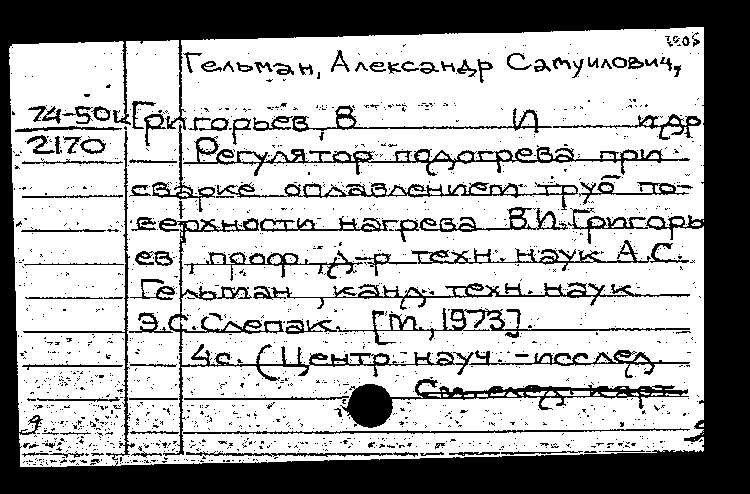 Гельман, Александр Самуилович,
74-50к Григорьев, В И и др
2170 Регулятор подогрева при
сварке оплавлением труб по-
верхности нагрева В.И. Григорь
ев, проф., д-р техн. наук А.С.
Гельман, канд. техн. наук
Э.С. Слепак. [М., 1973].
4с. (Центр. науч.-исслед.
См. след. карт.